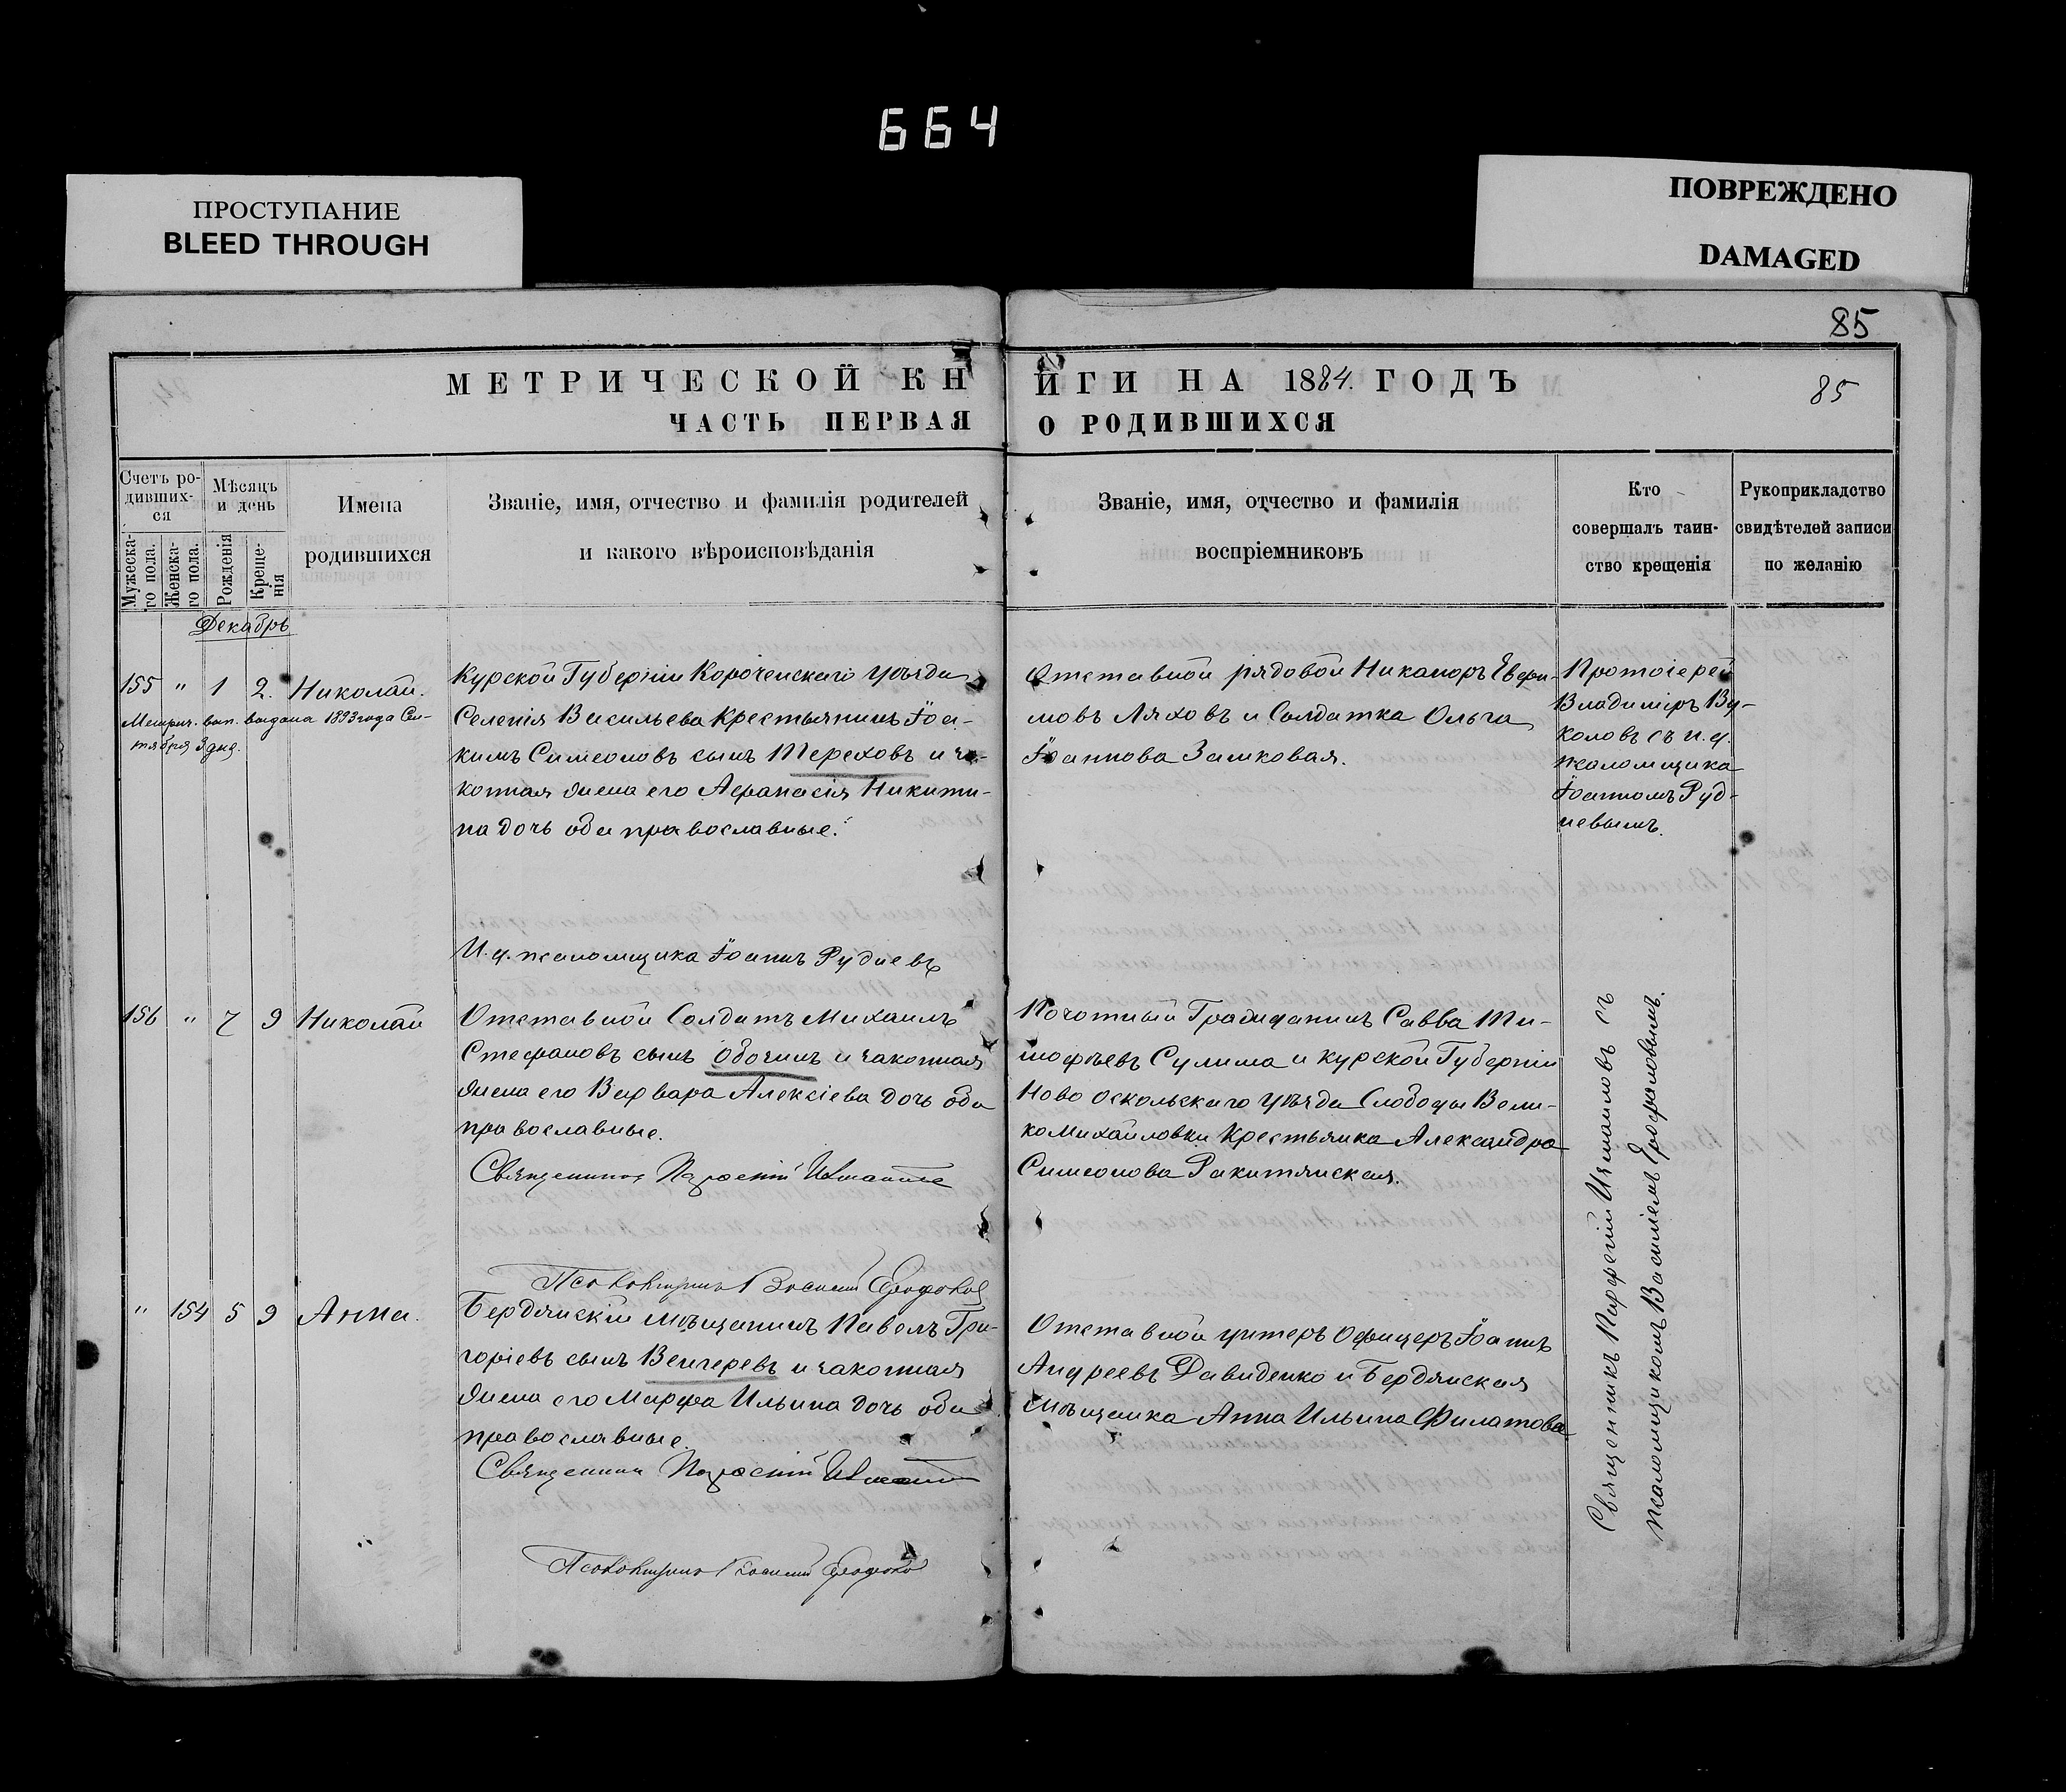 664
ПРОСТУПАНИЕ
BLEED THROUGH
ПОВРЕЖДЕНО
DAMAGED
85
МЕТРИЧЕСКОЙ КНИГИ НА 1884. ГОДЪ
85
ЧАСТЬ ПЕРВАЯ О РОДИВШИХСЯ
Счетъ ро-
дивших-
ся
Мужеска-
го пола.
Женска-
го пола.
Мѣсяцъ
и день
Рожденія
Креще-
нія
Имена
родившихся
Званіе, имя, отчество и фамилія родителей
и какого вѣроисповѣданія
Званіе, имя, отчество и фамилія
воспріемниковъ
Кто
совершалъ таин-
ство крещенія
Рукоприкладство
свидѣтелей записи
по желанію
Декабрь
155 " 1 2. Николай.
Метрич. вып. выдана 1893 года Сен-
тября 3 дня.
Курской Губерніи Короченскаго уѣзда
Селенія Васильева Крестьянинъ Іоа-
кимъ Симеоновъ сынъ Тереховъ и за-
конная жена его Афанасія Никити-
на дочь оба православные.
И. д. псаломщика Іоаннъ Рудневъ
Отставной рядовой Никаноръ
мовъ Ляховъ и Солдатка Ольга
Іоаннова Замковая.
Протоіерей
Владиміръ Ву-
коловъ съ и. д.
псаломщика
Іоанномъ Руд-
невымъ.
156 " 7 9 Николай
Отставной Солдатъ Михаилъ
Стефановъ сынъ Обочинъ и законная
жена его Варвара Алексіева дочь оба
православные.
Священникъ
Псаломщикъ Василій
Почотный Гражданинъ Савва Ти-
мофѣевъ Сулима и Курской Губерніи
Ново Оскольскаго уѣзда Слободы Вели-
комихайловки Крестьянка Александра
Симеонова Ракитянская.
" 154 5 9 Анна.
Бердянскій мѣщанинъ Павелъ Гри-
горіевъ сынъ Венгеревъ и законная
жена его Марфа Ильина дочь оба
православные.
Священникъ
Псаломщикъ Василій
Отставной унтеръ офицеръ Іоаннъ
Андреевъ Давиденко и Бердянская
мѣщанка Анна Ильина Филатова
Священникъ Парфеній Измаиловъ съ
псаломщикомъ Василіемъ Ерофаловымъ.